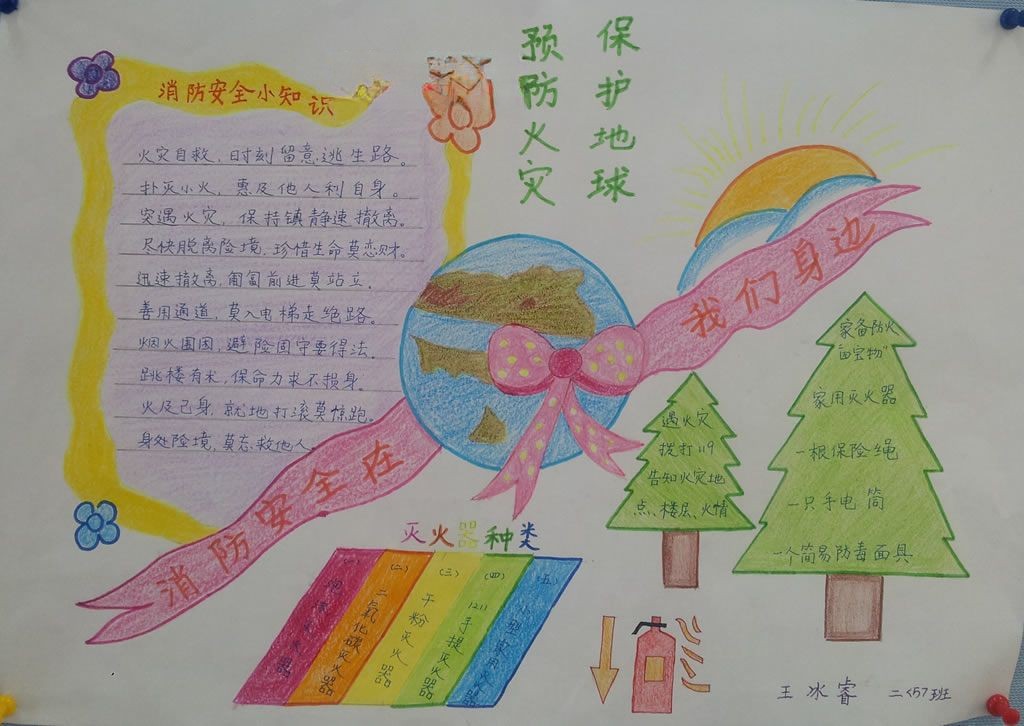 保护地球
预防火灾
消防安全小知识
火灾自救，时刻留意逃生路。
扑灭小火，惠及他人利自身。
突遇火灾，保持镇静速撤离。
尽快脱离险境，珍惜生命莫恋财。
迅速撤离，匍匐前进莫站立。
善用通道，莫入电梯走绝路。
烟火围困，避险固守要得法。
跳楼有术，保命力求不损身。
火及己身，就地打滚莫惊跑。
身处险境，莫忘救他人。
消防安全在我们身边
遇火灾
拨打119
告知火灾地
点、楼层、火情
家备防火
"四宝物"
家用灭火器
一根保险绳
一只手电筒
一个简易防毒面具
灭火器种类
(一)
(二)二氧化碳灭火器
(三)干粉灭火器
(四)1211手提灭火器
(五)小型家用灭火器
王冰睿 二<5>班